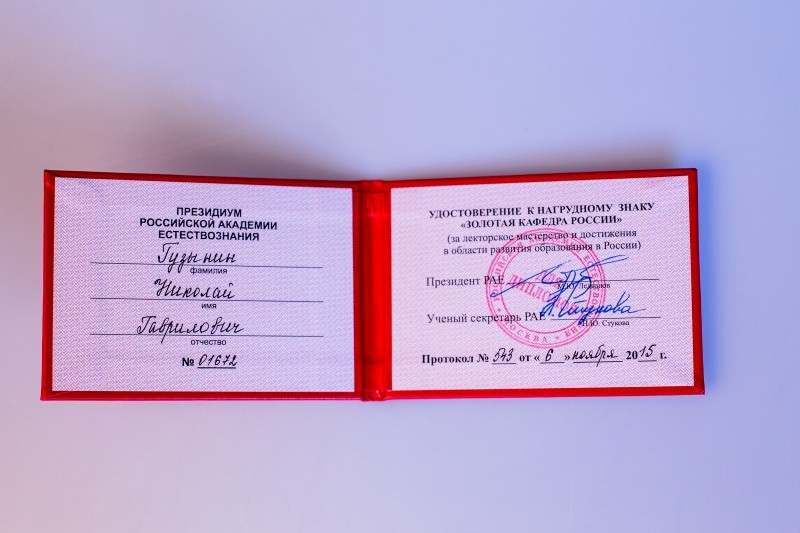 ПРЕЗИДИУМ
РОССИЙСКОЙ АКАДЕМИИ
ЕСТЕСТВОЗНАНИЯ
Гузынин
фамилия
Николай
имя
Гаврилович
отчество
№ 01672
УДОСТОВЕРЕНИЕ К НАГРУДНОМУ ЗНАКУ
«ЗОЛОТАЯ КАФЕДРА РОССИИ»
(за лекторское мастерство и достижения
в области развития образования в России)
Президент РАЕ
М.Ю. Ледванов
Ученый секретарь РАЕ
Н.Ю. Стукова
Протокол № 543 от «6» ноября 2015 г.
ДЛЯ
ДИПЛОМОВ
МОСКВА